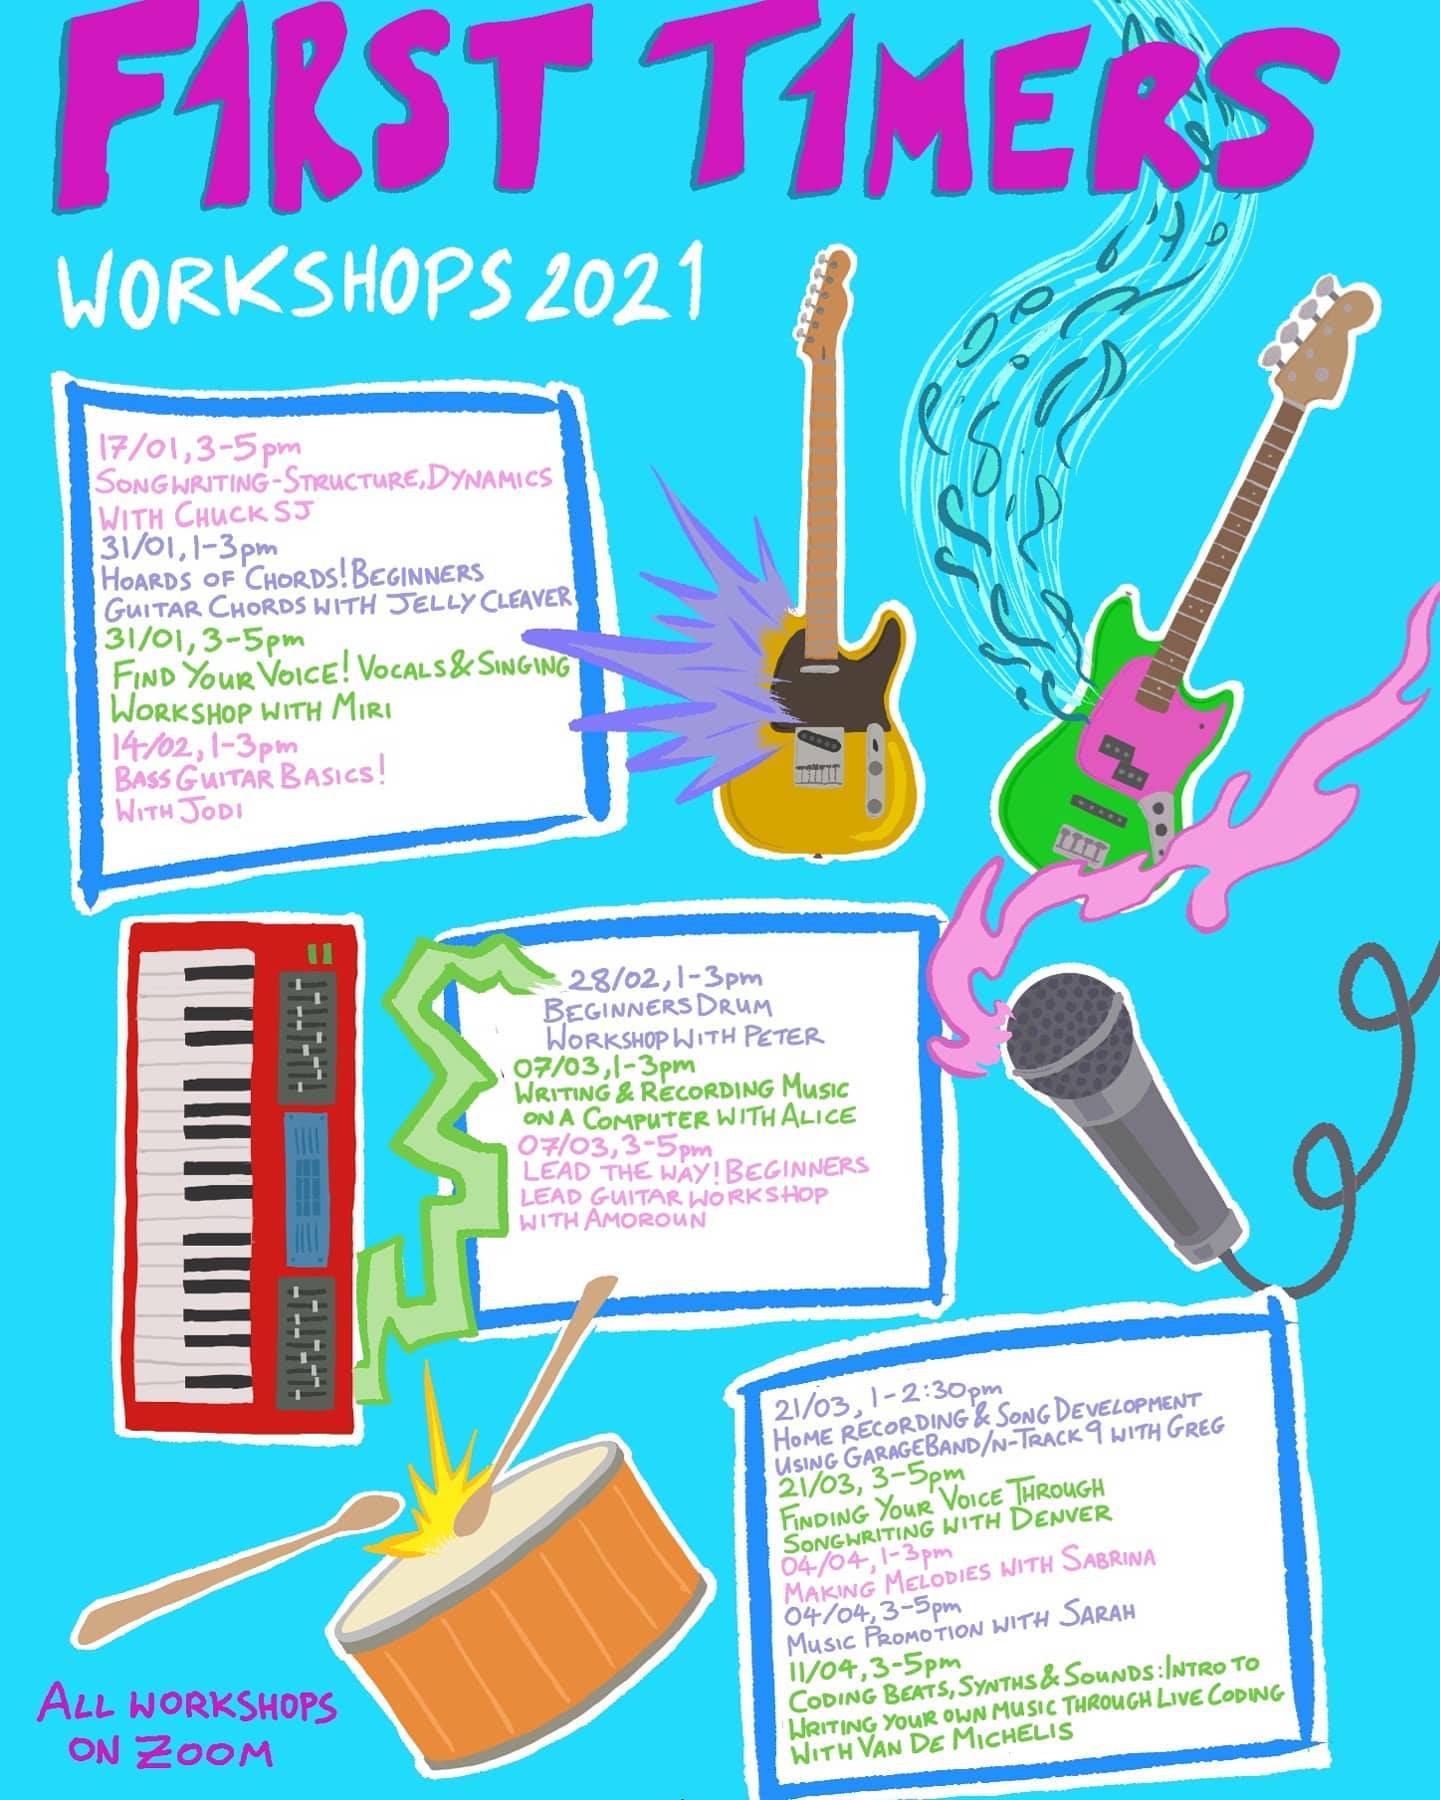 F1RST T1MERS
WORKSHOPS 2021
17/01, 3-5pm
SONGWRITING-STRUCTURE, DYNAMICS
WITH CHUCK SJ
31/01, 1-3pm
HOARDS OF CHORDS! BEGINNERS
GUITAR CHORDS WITH JELLY CLEAVER
31/01, 3-5pm
FIND YOUR VOICE! VOCALS & SINGING
WORKSHOP WITH MIRI
14/02, 1-3pm
BASS GUITAR BASICS!
WITH JODI
28/02, 1-3pm
BEGINNERS DRUM
WORKSHOP WITH PETER
07/03, 1-3pm
WRITING & RECORDING MUSIC
ON A COMPUTER WITH ALICE
07/03, 3-5pm
LEAD THE WAY! BEGINNERS
LEAD GUITAR WORKSHOP
WITH AMOROUN
21/03, 1-2:30pm
HOME RECORDING & SONG DEVELOPMENT
USING GARAGEBAND/N-TRACK 9 WITH GREG
21/03, 3-5pm
FINDING YOUR VOICE THROUGH
SONGWRITING WITH DENVER
04/04, 1-3pm
MAKING MELODIES WITH SABRINA
04/04, 3-5pm
MUSIC PROMOTION WITH SARAH
11/04, 3-5pm
CODING BEATS, SYNTHS & SOUNDS: INTRO TO
WRITING YOUR OWN MUSIC THROUGH LIVE CODING
WITH VAN DE MICHELIS
ALL WORKSHOPS
ON ZOOM